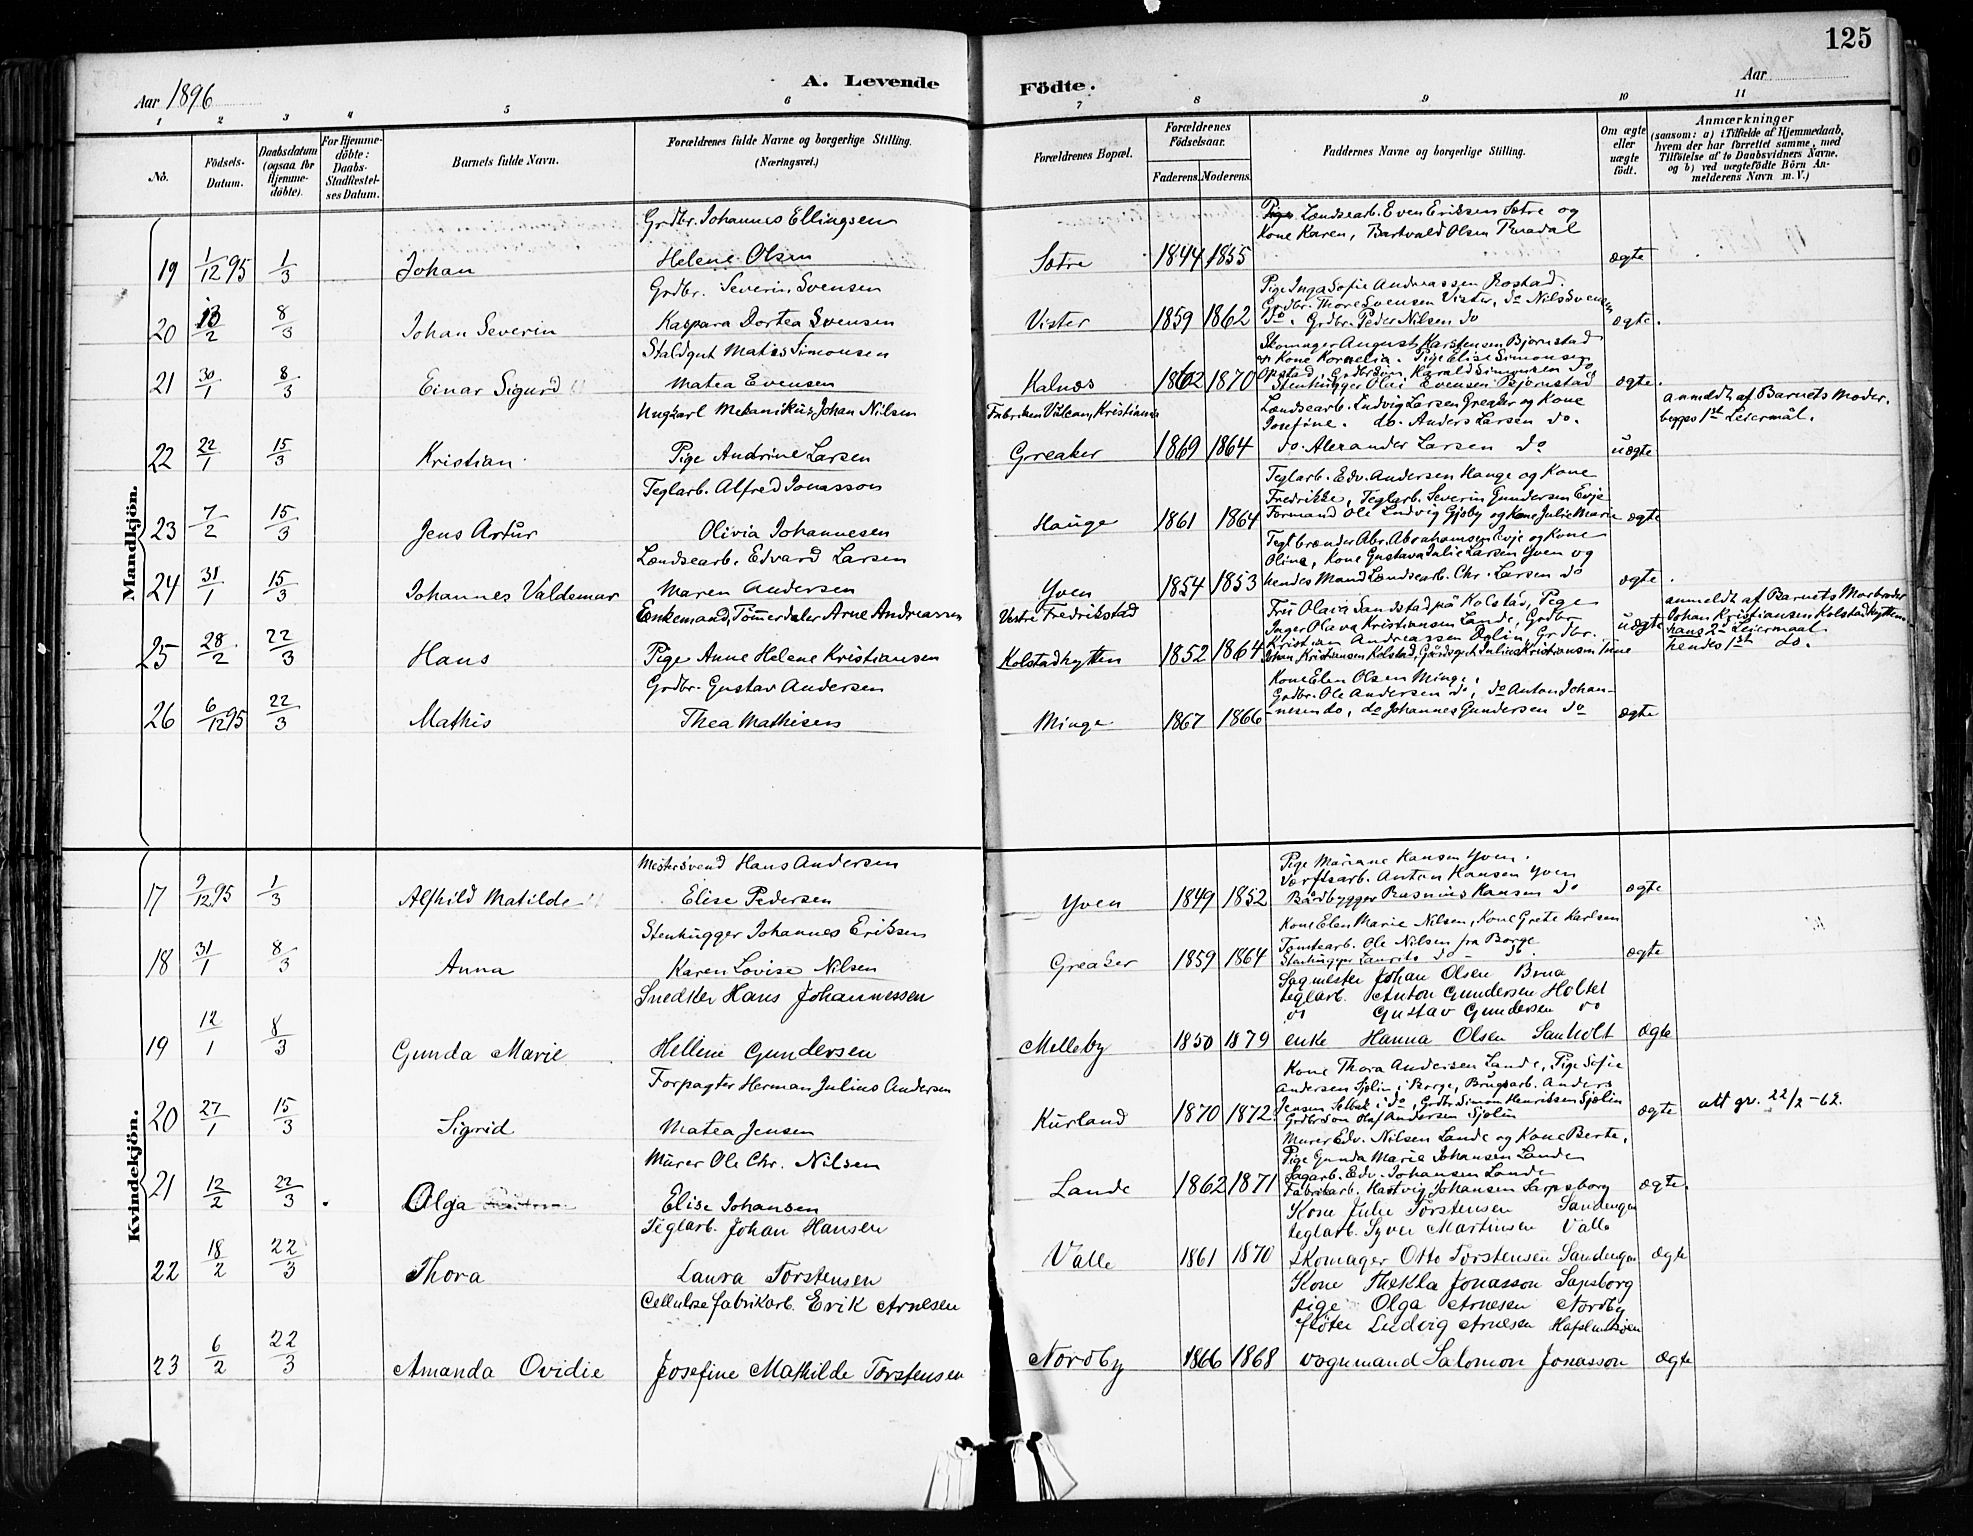 125
Aar 1896
A. Levende
Födte.
Aar
1 2 3 4 5 6 7 8 9 10 11
No.
Födsels-Datum.
Daabsdatum (ogsaa for Hjemme-döbte).
For Hjemme-döbte: Daabs-Stadfestel-ses Datum.
Barnets fulde Navn.
Forældrenes fulde Navne og borgerlige Stilling. (Næringsvei.)
Forældrenes Bopæl.
Forældrenes Födselsaar.
Faderens. Moderens.
Faddernes Navne og borgerlige Stilling.
Om ægte eller uægte födt.
Anmærkninger
(saasom: a) i Tilfælde af Hjemmedaab,
hvem der har forrettet samme, med
Tilföielse af to Daabsvidners Navne.
og b) ved uægtefödte Börn An-
melderens Navn m. V.)
Mandkjön.
19 1/12 95 1/3 Johan
Grdbr. Johannes Ellingsen
Helene Olsen
Sætre 1844 1855
Pige Landsearb. Even Eriksen Sætre og
Kone Karen, Bartvald Olsen
ægte
20 13/2 8/3 Johan Severin
Grdbr. Severin Svensen
Kaspara Dortea Svensen
Vister 1859 1862
Pige Inga Sofie Andreassen Rostad.
Grdbr. Thore Svensen Vister, do Nils Svensen
do. Grdbr. Peder Nilsen do
ægte.
21 30/1 8/3 Einar Sigurd
Staldgut Matis Simonsen
Matea Evensen
Kalnæs 1862 1870
Skomager August Karstensen Bjørnstad
og Kone Kornelia. Pige Elise Simonsen
Opstad, Grdbrsøn Harald Simonsen do
Stenhugger Olai Evensen Bjørnstad
ægte.
22 22/1 15/3 Kristian
Ungkarl Mekanikus Johan Nilsen
Pige Andrine Larsen
Fabriken Vulcan, Kristiania
Greaker 1869 1864
Landsearb. Ludvig Larsen Greaker og Kone
Josefine. do. Anders Larsen do.
do. Alexander Larsen do
uægte
anmeldt af Barnets Moder.
begges 1st Leiermål.
23 7/2 15/3 Jens Artur
Teglarb. Alfred Jonasson
Olivia Johannesen
Hauge 1861 1864
Teglarb. Edv. Andersen Hauge og Kone
Fredrikke, Teglarb. Severin Gundersen Evje
Formand Ole Ludvig Gjøby og Kone Julie Marie
ægte
24 31/1 15/3 Johannes Valdemar
Landsearb. Edvard Larsen
Maren Andersen
Yven 1854 1853
Teglbrænder Abr. Abrahamsen Evje og Kone
Oline, Kone Gustava Julie Larsen Yven og
hendes Mand Landsearb. Chr. Larsen do
ægte.
25 28/2 22/3 Hans
Enkemand, Tømmerdeler Arne Andreassen
Pige Anne Helene Kristiansen
Vestre Fredrikstad
Kolstadhytten 1852 1864
Fru Olava Sandstad på Kolstad, Pige
Inger Olava Kristiansen Lande, Grdbr
Kristian Andreassen Dolin, Grdbr.
Johan Kristiansen Kolstad, Gårdsgut Julius Kristiansen Tune
uægte
anmeldt af Barnets Morbroder
Johan Kristiansen Kolstadhytten
hans 2d Leiermaal
hendes 1st do.
26 6/12 95 22/3 Mathis
Grdbr. Gustav Andersen
Thea Mathisen
Minge 1867 1866
Kone Elen Olsen Minge,
Grdbr. Ole Andersen do, do Anton Johan-
nesen do, do Johannes Gundersen do
ægte
Kvindekjön.
17 9/12 95 1/3 Alfhild Matilde
Mestersvend Hans Andersen
Elise Pedersen
Yven 1849 1852
Pige Mariane Hansen Yven.
Værftsarb. Anton Hansen Yven
Bådbygger Rasmus Hansen do
ægte
18 31/1 8/3 Anna
Stenhugger Johannes Eriksen
Karen Lovise Nilsen
Greaker 1859 1864
Kone Elen Marie Nilsen, Kone Grete Karlsen
Tomtearb. Ole Nilsen fra Borge
Stenhugger Laurits do - do.
ægte
19 12/1 8/3 Gunda Marie
Snedker Hans Johannessen
Hellene Gundersen
Melleby 1850 1879
Sagmester Johan Olsen Brua
teglarb. Anton Gundersen Holtet
do Gustav Gundersen do
enke Hanna Olsen Sanholt
Ægte
20 27/1 15/3 Sigrid
Forpagter Herman Julius Andersen
Matea Jensen
Kurland 1870 1872
Kone Thora Andersen Lande, Pige Sofie
Andersen Sjølin i Borge, Brugsarb. Anders
Jensen Selbak i do, Grdbr Simon Henriksen Sjølin
Grdbrsøn Olaf Andersen Sjølin
ægte
att gr. 22/2-62.
21 12/2 22/3 Olga
Murer Ole Chr. Nilsen
Elise Johansen
Lande 1862 1871
Murer Edv. Nilsen Lande og Kone Berte,
Pige Gunda Marie Johansen Lande
Sagarb. Edv. Johansen Lande
Fabrikarb. Hartvig Johansen Sarpsborg
ægte.
22 18/2 22/3 Thora
Teglarb. Johan Hansen
Laura Torstensen
Valle 1861 1870
Kone Julie Torstensen Sandengen
teglarb. Syver Martinsen Valle
skomager Otto Torstensen Sandengen
ægte
23 6/2 22/3 Amanda Ovidie
Cellulosefabrikarb. Erik Arnesen
Josefine Mathilde Torstensen
Nordby 1866 1868
Kone Thekla Jonasson Sapsborg
pige Olga Arnesen Nordby
fløter Ludvig Arnesen Hafslundsøen
vognmand Salomon Jonasson
Ægte